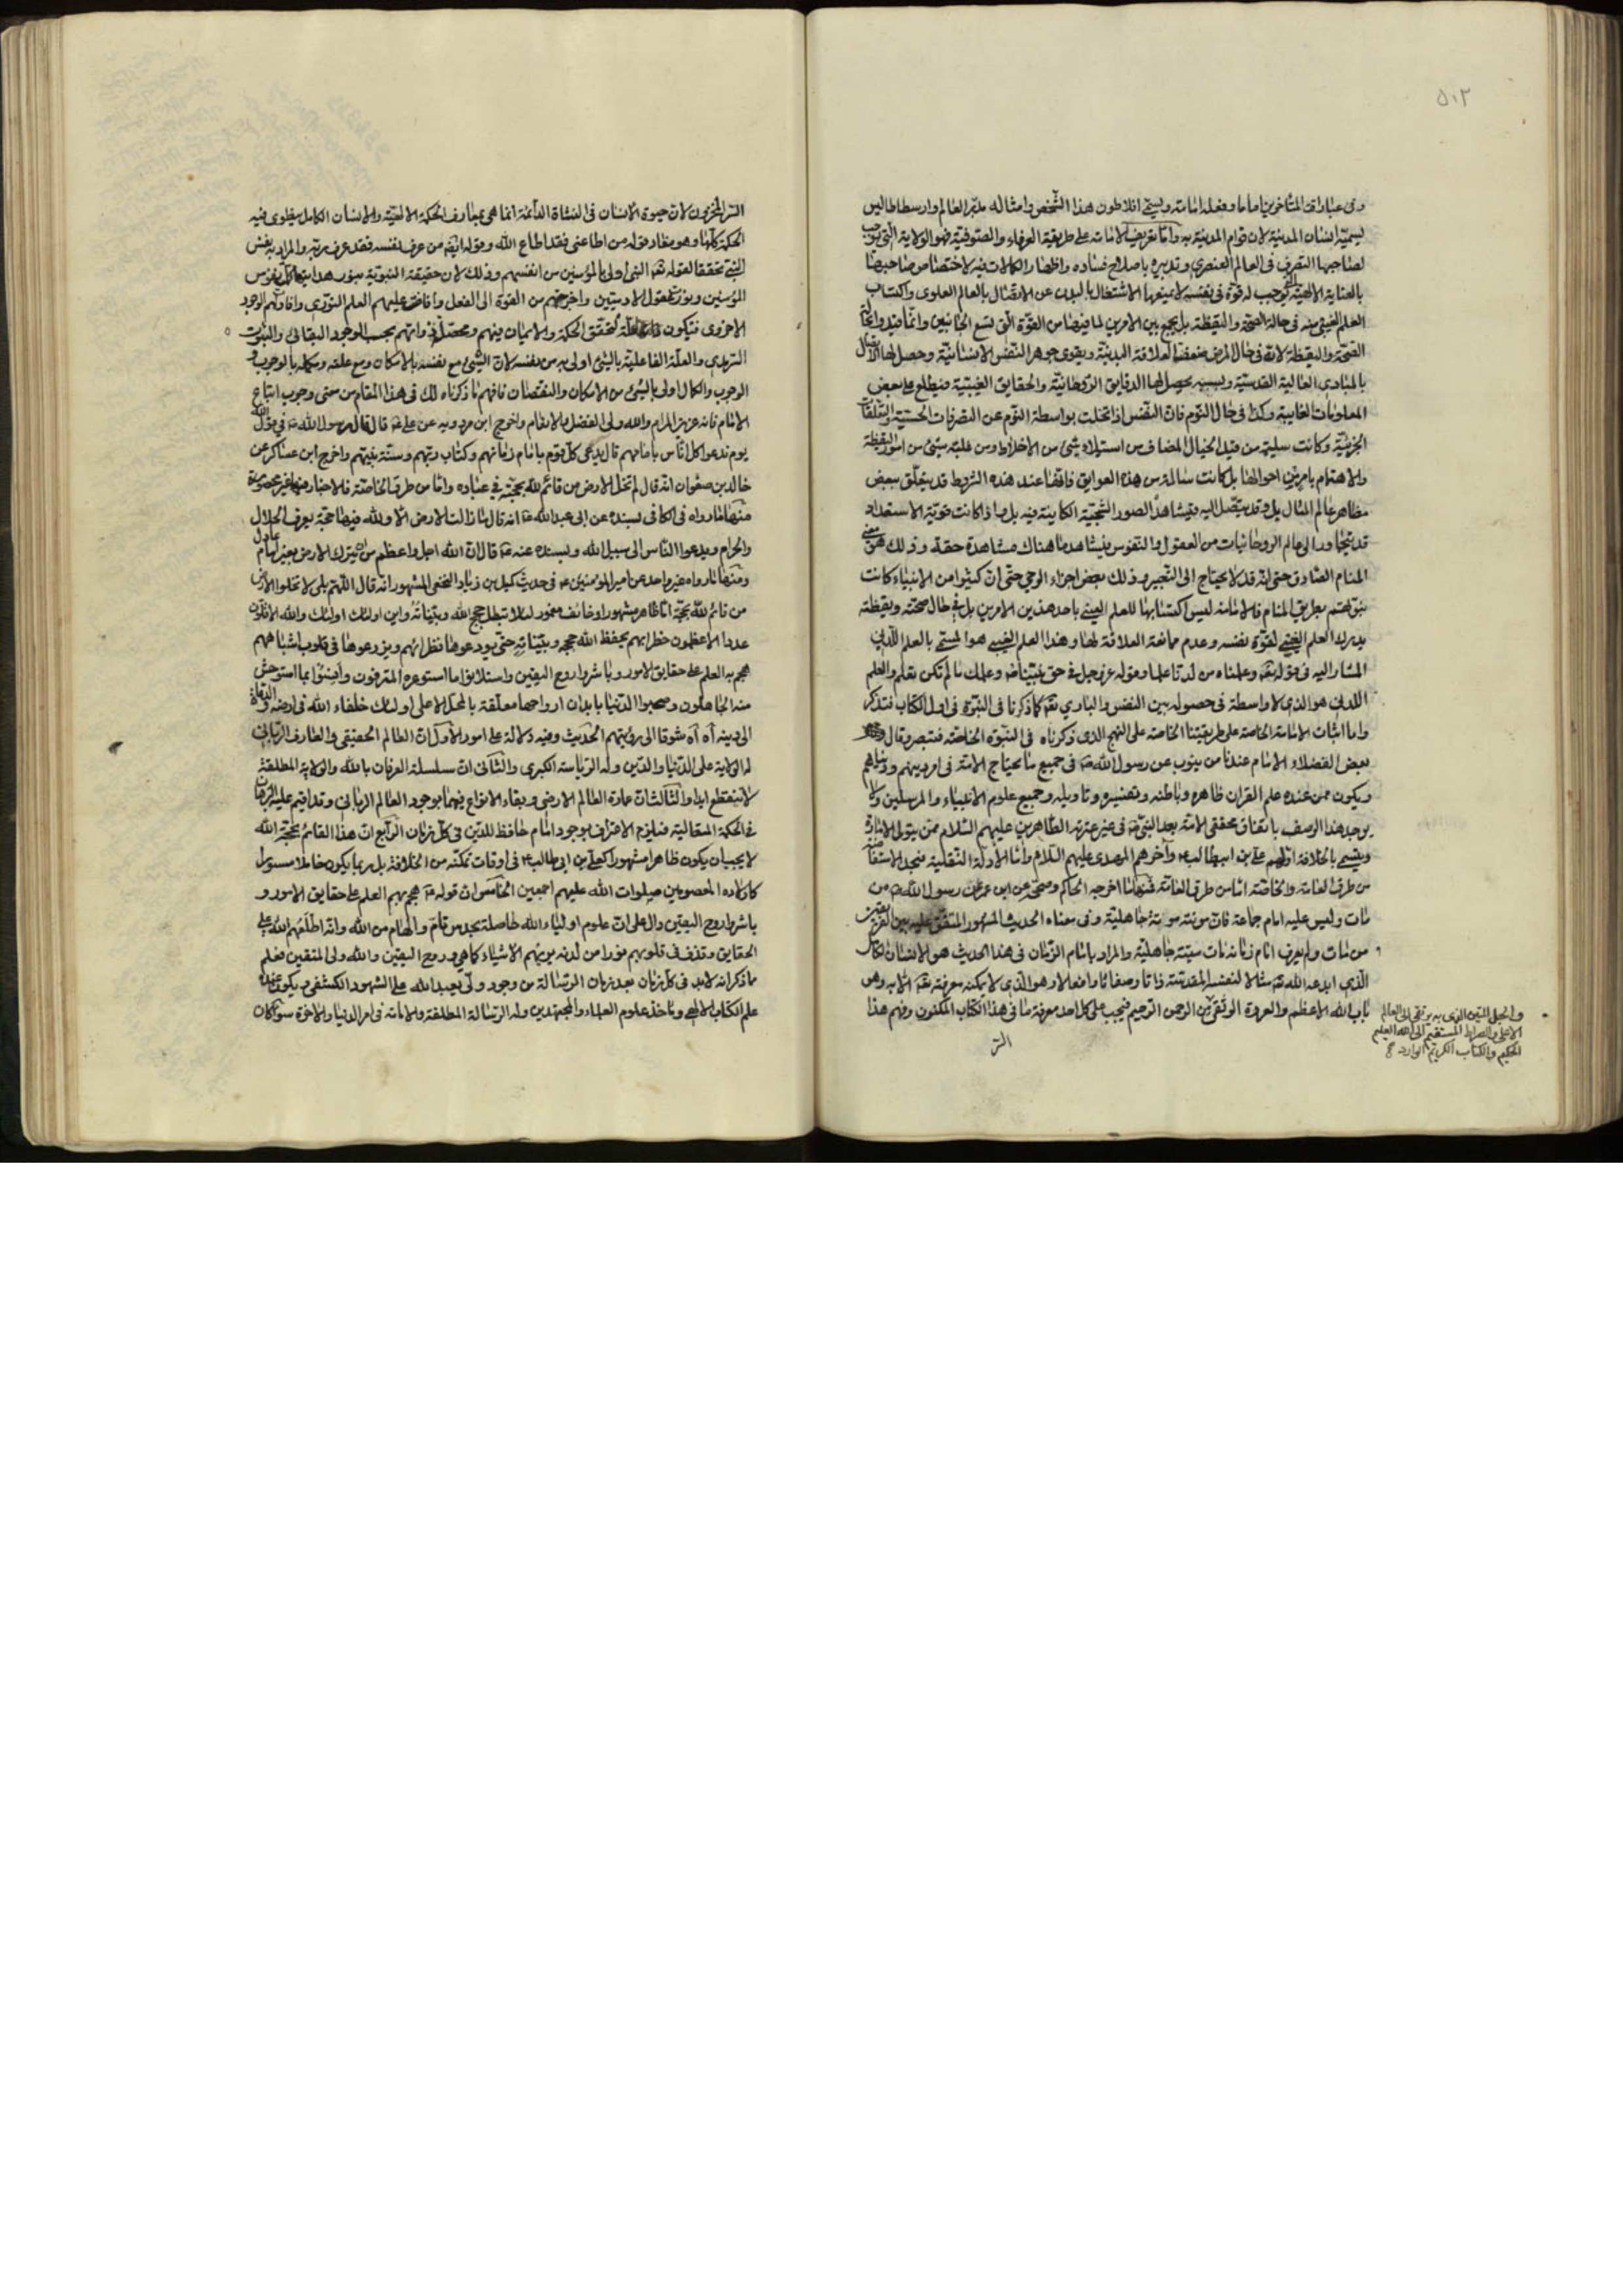 ٥٠٢
وفى عبارات المتأخرين اماما وفعله امامته ويسمى افلاطون هذا الشخص وامثاله مدبر العالم وارسطاطاليس
يسميه انسان المدينة لان قوام المدينة به واما تعريف الامامة على طريقة العرفاء والصوفية فهو الولاية التى توجب
لصاحبها التصرف فى العالم العنصرى وتدبيره باصلاح فساده واظهار الكمالات فيه لاختصاص صاحبها
بالعناية الالهية توجب له قوة فى نفسه لا يمنعها الاشتغال بالبدن عن الاتصال بالعالم العلوى واكتساب
العلم الغيبى منه فى حالة الصحة واليقظة بل يجمع بين الامرين لما فيها من القوة التى تسع الجانبين وانما قيد والحالة
الصحة واليقظة لانه فى حال المرض يضعف العلاقة البدنية ويقوى جوهر النفس الانسانية وحصل لها الاتصال
بالمبادى العالية القدسية وبسببه يحصل لها الدقايق الروحانية والحقايق الغيبية فيطلع على بعض
المعلومات الغايبة وكذا فى حال النوم فان النفس اذا تخلت بواسطة النوم عن التصرفات الحسية والتعلقات
الجزئية وكانت سليمة من قبل الخيال المضاف من استيلاء شئ من الاخلاط ومن غلبة شئ من امور اليقظة
والاهتمام بامر من احوالها بل كانت سالمة من هذه العوايق فانها عند هذه الشروط قد يتعلق ببعض
مظاهر عالم المثال بل وقد يتصل اليه فيشاهد الصور الشبحية الكاينة فيه بل اذا كانت قوية الاستعداد
قد تتجاوز الى عالم الروحانيات من العقول والنفوس فيشاهد ما هناك مشاهدة حقة وذلك هو معنى
المنام الصادق حتى انه قد لا يحتاج الى التعبير وذلك بعض اجزاء الوحى حتى ان كثيرا من الانبياء كانت
نبوتهم بطريق المنام فالامامة ليس اكتسابها للعلم الغيبى باحد هذين الامرين بل فى حال صحته ويقظته
يدرك العلم الغيبى لقوة نفسه وعدم ممانعة العلاقة لها وهذا العلم الغيبى هو المسمى بالعلم اللدنى
المشار اليه فى قوله تعالى وعلمناه من لدنا علما وقوله عز وجل فى حق نبينا وعلمك ما لم تكن تعلم والعلم
اللدنى هو الذى لا واسطة فى حصوله بين النفس والبارى تعالى كما ذكرنا فى النبوة فى اول الكتاب فتذكر
واما اثبات الامامة الخاصة على طريقتنا الخاصة على النهج الذى ذكرناه فى النبوة الخاصة فتبصر وقال
بعض الفضلاء الامام عندنا من ينوب عن رسول الله فى جميع ما يحتاج الامة فى امر دينهم ودنياهم
ويكون ممن عنده علم القران ظاهره وباطنه وتفسيره وتاويله وجميع علوم الانبياء والمرسلين ولا
يوجد هذا الوصف باتفاق محققى الامة بعد النبى فى غير عترته الطاهرين عليهم السلام ممن يتولى الامارة
ويتسمى بالخلافة اولهم على بن ابيطالب وآخرهم المهدى عليهم السلام واما الادلة النقلية
من طرق العامة والخاصة اما من طرق العامة فمنها ما اخرجه الحاكم وصححه عن ابن عمر عن رسول الله من
مات وليس عليه امام جماعة فان موتته موتة جاهلية وفى معناه الحديث المشهور المتفق عليه بين الفريقين
من مات ولم يعرف امام زمانه مات ميتة جاهلية والمراد بامام الزمان فى هذا الحديث هو الانسان الكامل
الذى ابدعه الله مثالا لنفسه المقدسة ذاتا وصفاتا وافعالا وهو الذى لا يمكنه معرفته تعالى الا به وهو
باب الله الاعظم والعروة الوثقى من الرحمن الرحيم فيجب على كل احد معرفة ما فى هذا الكتاب المكنون وفهم هذا
السر
والحبل المتين الذى به يرتقى الى العالم
الاعلى والصراط المستقيم الى الله العليم
الحكيم والكتاب الكريم الوارد
السر المخزون لان حيوة الانسان فى النشاة الدائمة انما هى بمعارف الحكمة الالهية والانسان الكامل ينطوى فيه
الحكمة كلها وهو مفاد قوله من اطاعنى فقد اطاع الله وقوله ايضا من عرف نفسه فقد عرف ربه والمراد به نفس
النبى تحققا لقوله النبى اولى بالمؤمنين من انفسهم وذلك لان حقيقة النبوية
المؤمنين وينور عقول الادميين واخرجتهم من القوة الى الفعل وافاض عليهم العلم النورى وافادتهم الوجود
الاخروى فيكون علة لتحقق الحكمة والايمان فيهم ومحصل ذواتهم بحسب الوجود البقائى والثبوت
السرمدى والعلة الفاعلية بالشئ اولى به من نفسه لان الشئ مع نفسه بالامكان ومع علته ومكمله بالوجوب و
الوجوب والكمال اولى بالشئ من الامكان والنقصان فافهم ما ذكرناه لك فى هذا المقام من معنى وجوب اتباع
الامام فانه عزيز المرام والله ولى الفضل والانعام واخرج ابن مردويه عن على قال قال رسول الله فى قول الله
يوم ندعوا كل اناس بامامهم قال يدعى كل قوم بامام زمانهم وكتاب ربهم وسنة نبيهم واخرج ابن عساكر عن
خالد بن صفوان انه قال لم تخل الارض من قائم لله بحجته فى عباده واما من طرق الخاصة فالاخبار فيها غير محصورة
منها ما رواه فى الكافى بسنده عن ابى عبد الله انه قال ما زالت الارض الا ولله فيها حجة يعرف الحلال
والحرام ويدعوا الناس الى سبيل الله وبسنده عنه قال ان الله اجل واعظم من ان يترك الارض بغير امام عادل
ومنها ما رواه غير واحد عن امير المؤمنين فى حديث كميل بن زياد النخعى المشهور انه قال اللهم بلى لا تخلوا الارض
من قائم لله بحجة اما ظاهر مشهور او خائف مغمور لئلا تبطل حجج الله وبيناته واين اولئك اولئك والله الاقلون
عددا الاعظمون خطرا بهم يحفظ الله حججه وبيناته حتى يودعوها نظرائهم ويزرعوها فى قلوب اشباههم
هجم به العلم على حقايق الامور وباشروا روح اليقين واستلانوا ما استوعره المترفون وانسوا بما استوحش
منه الجاهلون وصحبوا الدنيا بابدان ارواحها معلقة بالمحل الاعلى اولئك خلفاء الله فى ارضه والدعاة
الى دينه آه آه شوقا الى رؤيتهم الحديث وفيه دلالة على امور الاول ان العالم الحقيقى والعارف الربانى
له الولاية على الدنيا والدين وله الرياسة الكبرى والثانى ان سلسلة العرفان بالله والولاية المطلقة
لا ينقطع ابدا والثالث ان عمارة العالم الارضى وبقاء الانواع فيها بوجود العالم الربانى وقد اقيم عليه البرهان
فى الحكمة المتعالية فيلزم الاعتراف بوجود امام حافظ للدين فى كل زمان الرابع ان هذا القائم بحجة الله
لا يجب ان يكون ظاهرا مشهورا كعلى بن ابى طالب فى اوقات تمكنه من الخلافة بل ربما يكون خاملا مستورا
كاولاده المعصومين صلوات الله عليهم اجمعين الخامس ان قوله هجم بهم العلم على حقايق الامور و
باشروا روح اليقين دال على ان علوم اولياء الله حاصلة بحدس تام والهام من الله وانه اطلعهم الله على
الحقايق وقذف فى قلوبهم نورا من لدنه يريهم الاشياء كما هى وروح اليقين والله ولى المتقين فعلم
مما ذكر انه لابد فى كل زمان بعد زمان الرسالة من وجود ولى يعبد الله على الشهود الكشفى ويكون عنده
علم الكتاب الالهى وماخذ علوم العلماء والمجتهدين وله الرسالة المطلقة والامامة فى امر الدنيا والاخرة سواء كان